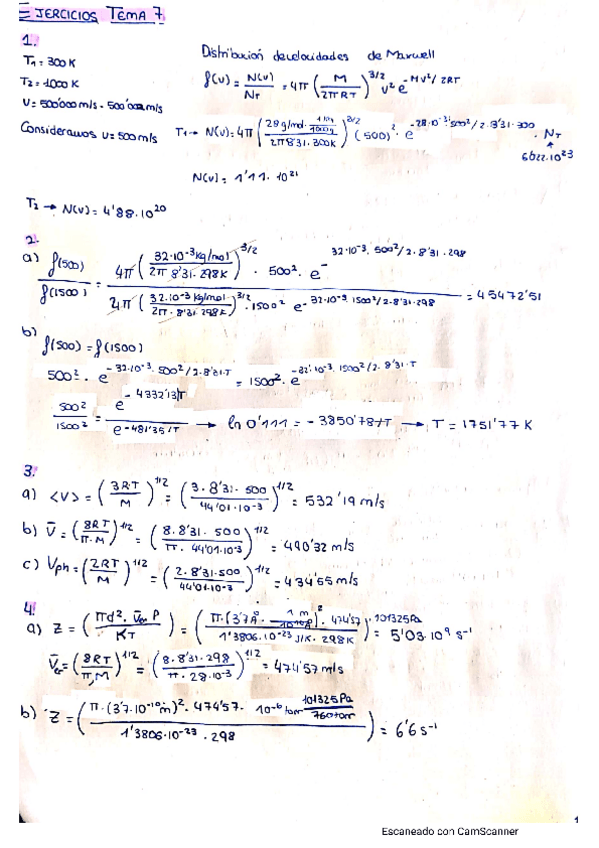 EJERCICIOS TEMA 7
1.
T₁ = 300K
T₂ = 1000 K
Distribución de velocidades de Maxwell
f(v) = N(v)/N_T = 4π (M/2πRT)^3/2 v² e^-Mv²/2RT
V = 500'000 m/s - 500'001 m/s
Consideramos v = 500 m/s
T₁ → N(v) = 4π (28 g/mol · 1kg/1000g / 2π 8'31 · 300K)^3/2 (500)² · e^-28·10^-3·500²/2·8'31·300 · N_T
6'022·10^23
N(v) = 1'11 · 10^21
T₂ → N(v) = 4'88 · 10^20
2.
a) f(500)/f(1500) = 4π (32·10^-3 kg/mol / 2π 8'31·298K)^3/2 · 500² · e^-32·10^-3·500²/2·8'31·298 / 4π (32·10^-3 kg/mol / 2π·8'31·298K)^3/2 · 1500² e^-32·10^-3·1500²/2·8'31·298 = 45472'51
b) f(500) = f(1500)
500² · e^-32·10^-3·500²/2·8'31·T = 1500² · e^-32·10^-3·1500²/2·8'31·T
500²/1500² = e^-4332'13/T / e^-481'35/T → ln 0'111 = -3850'78/T → T = 1751'77 K
3.
a) <v> = (3RT/M)^1/2 = (3·8'31·500 / 44'01·10^-3)^1/2 = 532'19 m/s
b) V̄ = (8RT/π·M)^1/2 = (8·8'31·500 / π·44'01·10^-3)^1/2 = 490'32 m/s
c) Vph = (2RT/M)^1/2 = (2·8'31·500 / 44'01·10^-3)^1/2 = 434'55 m/s
4.
a) Z = (πd²· P / KT) = (π·(3'7Å · 1 m)² · 474'57 · 101325Pa / 1'3806·10^-23 J/K · 298K) = 5'03·10^9 s^-1
= (8RT/π·M)^1/2 = (8·8'31·298 / π·28·10^-3)^1/2 = 474'57 m/s
b) Z = (π·(3'7·10^-10 m)² · 474'57 · 10^-6 torr 101325Pa/760torr / 1'3806·10^-23 · 298) = 6'6 s^-1
1
Escaneado con CamScanner